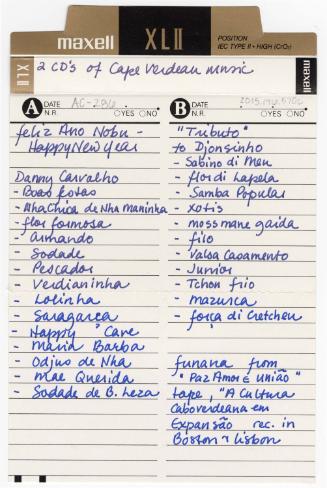 maxell XLII POSITION
IEC TYPE II • HIGH (CrO2)
XLII
2 CD's of Cape Verdean music
maxell
A DATE AC-286
N.R. ○YES ○NO
feliz Ano Nobu -
Happy New Year
Danny Carvalho
- Boas festas
- Nha Chica de Nha Maninha
- flor formosa
- Armando
- Sodade
- Pescador
- Verdianinha
- Lolinha
- Saragarça
- Happy Cave
- Maria Barba
- Odjus de Nha
- Mãe Querida
- Sodade de B. Leza
B DATE
N.R. ○YES ○NO
"Tributo"
to Djonsinho
- Sabino di Meu
- flor di Lapela
- Samba Popular
- xotis
- moss mane gaida
- filo
- Valsa Casamento
- Junior
- Tchon frio
- mazurca
- força di Cretcheu
funana from
"Paz Amor E União"
tape, "A Cultura
Caboverdeana em
Expansão rec. in
Boston & Lisbon